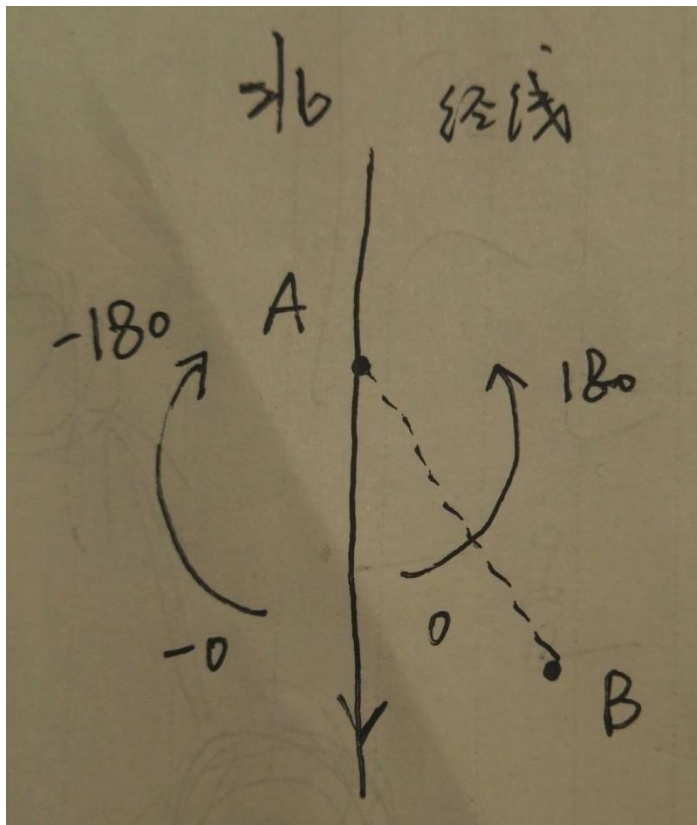 北 经线
A
-180
180
-0
0
B